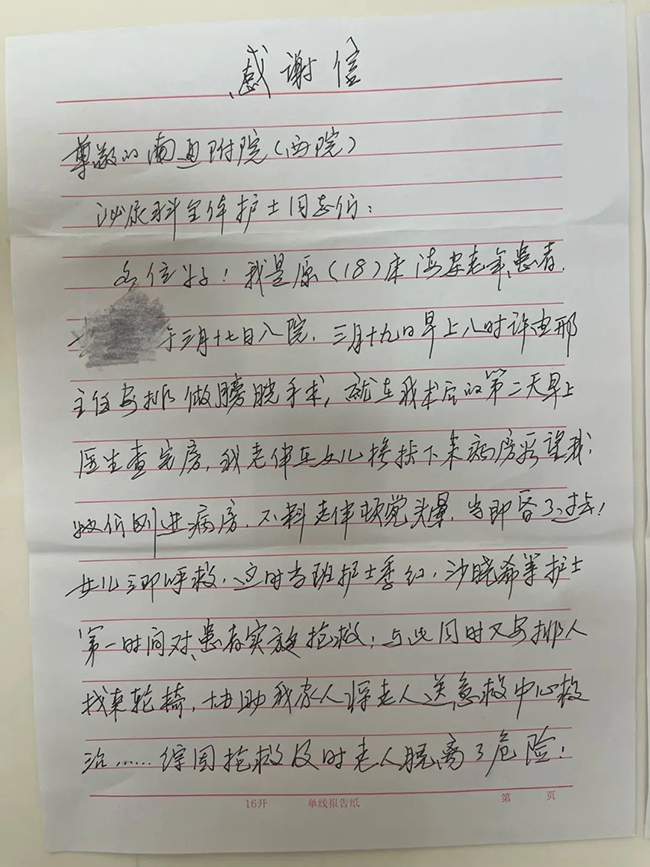 感谢信
尊敬的南通附院(西院)
泌尿科全体护士同志们:
各位好!我是原(18)床海安老年患者.
于三月十七日入院.三月十九日早上八时许由邢
主任安排做膀胱手术,就在我术后的第二天早上
医生查完房,我老伴在女儿搀扶下来病房看望我,
她们刚进病房,不料老伴顿觉头晕.当即昏了过去!
女儿立即呼救,这时当班护士季红,沙晓希等护士
第一时间对患者实施抢救,与此同时又安排人
找来轮椅,协助我家人将老人送急救中心救
治……终因抢救及时老人脱离了危险!
16开 单线报告纸 第 页